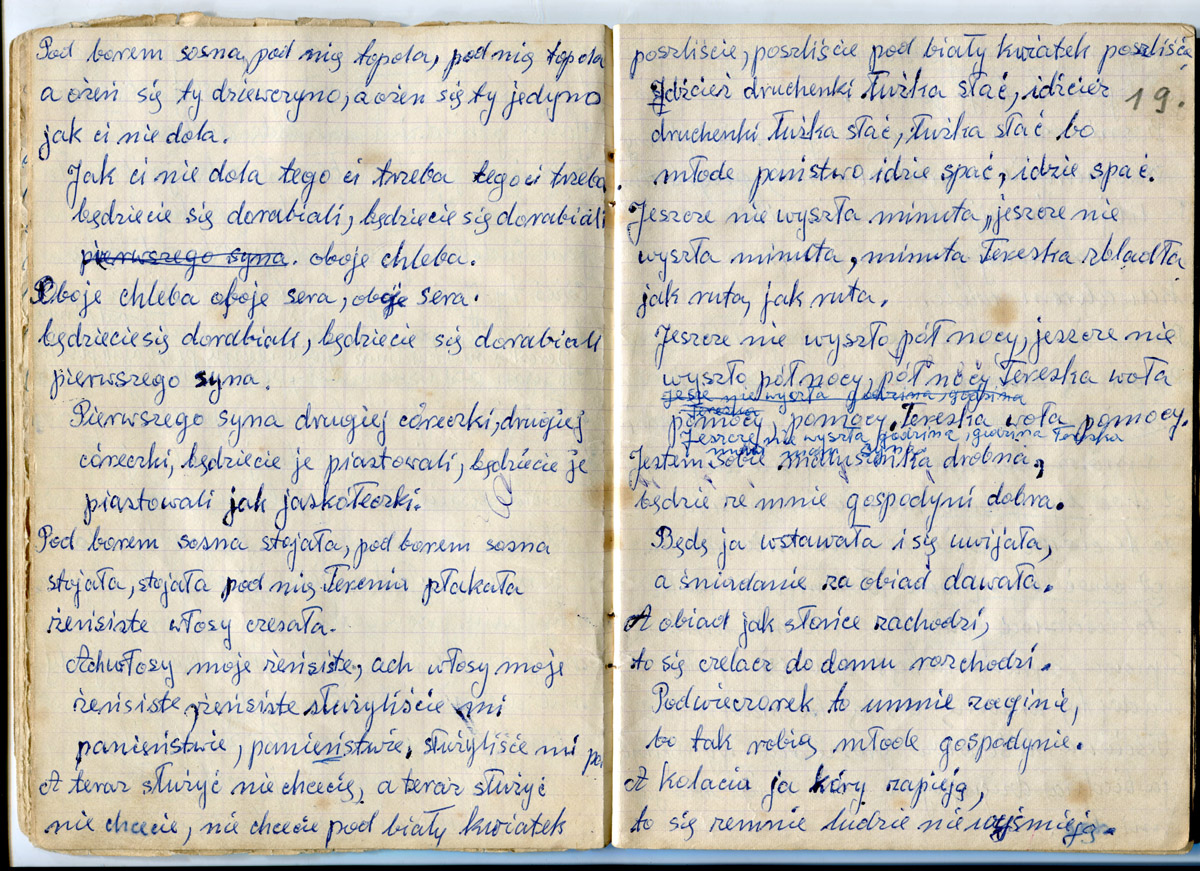 Pod borem sosna, pod nią topola, pod nią topola
a ożeń się ty dziewczyno, a ożeń się ty jedyno
jak ci nie dola.
Jak ci nie dola tego ci trzeba tego ci trzeba
będziecie się dorabiali, będziecie się dorabiali
pierwszego syna. oboje chleba.
Oboje chleba oboje sera, oboje sera.
będziecie się dorabiali, będziecie się dorabiali
pierwszego syna.
Pierwszego syna drugiej córeczki, drugiej
córeczki, będziecie je piastowali, będziecie je
piastowali jak jaskółeczki.
Pod borem sosna stojała, pod borem sosna
stojała, stojała pod nią Terenia płakała
rzęsiste włosy czesała.
Ach włosy moje rzęsiste, ach włosy moje
rzęsiste, rzęsiste służyliście mi
panieństwie, panieństwie, służyliście mi
A teraz służyć nie chcecię, a teraz służyć
nie chcecie, nie chcecie pod biały kwiatek
poszliście, poszliście pod biały kwiatek poszliście
Idźcież druchenki łużka słać, idźcież 19.
druchenki łużka słać, łużka słać bo
młode państwo idzie spać, idzie spać.
Jeszcze nie wyszła minuta, jeszcze nie
wyszła minuta, minuta Tereska zbladła
jak ruta, jak ruta.
Jeszcze nie wyszło pół nocy, jeszcze nie
wyszło pół nocy, pół nocy Tereska woła
nie wyszła godzina, godzina
Tereska
pomocy, pomocy, Tereska woła pomocy.
Jeszcze nie wyszła godzina, godzina Tereska
Jestem sobie malusieńka drobna,
będzie ze mnie gospodyni dobra.
Będę ja wstawała i się uwijała,
a śniadanie za obiad dawała.
A obiad jak słońce zachodzi,
to się czeladz do domu rozchodzi.
Podwieczorek to umnie zaginie,
bo tak robią młode gospodynie.
A kolacia ja kury zapieją,
to się zemnie ludzie nie wyśmieją.